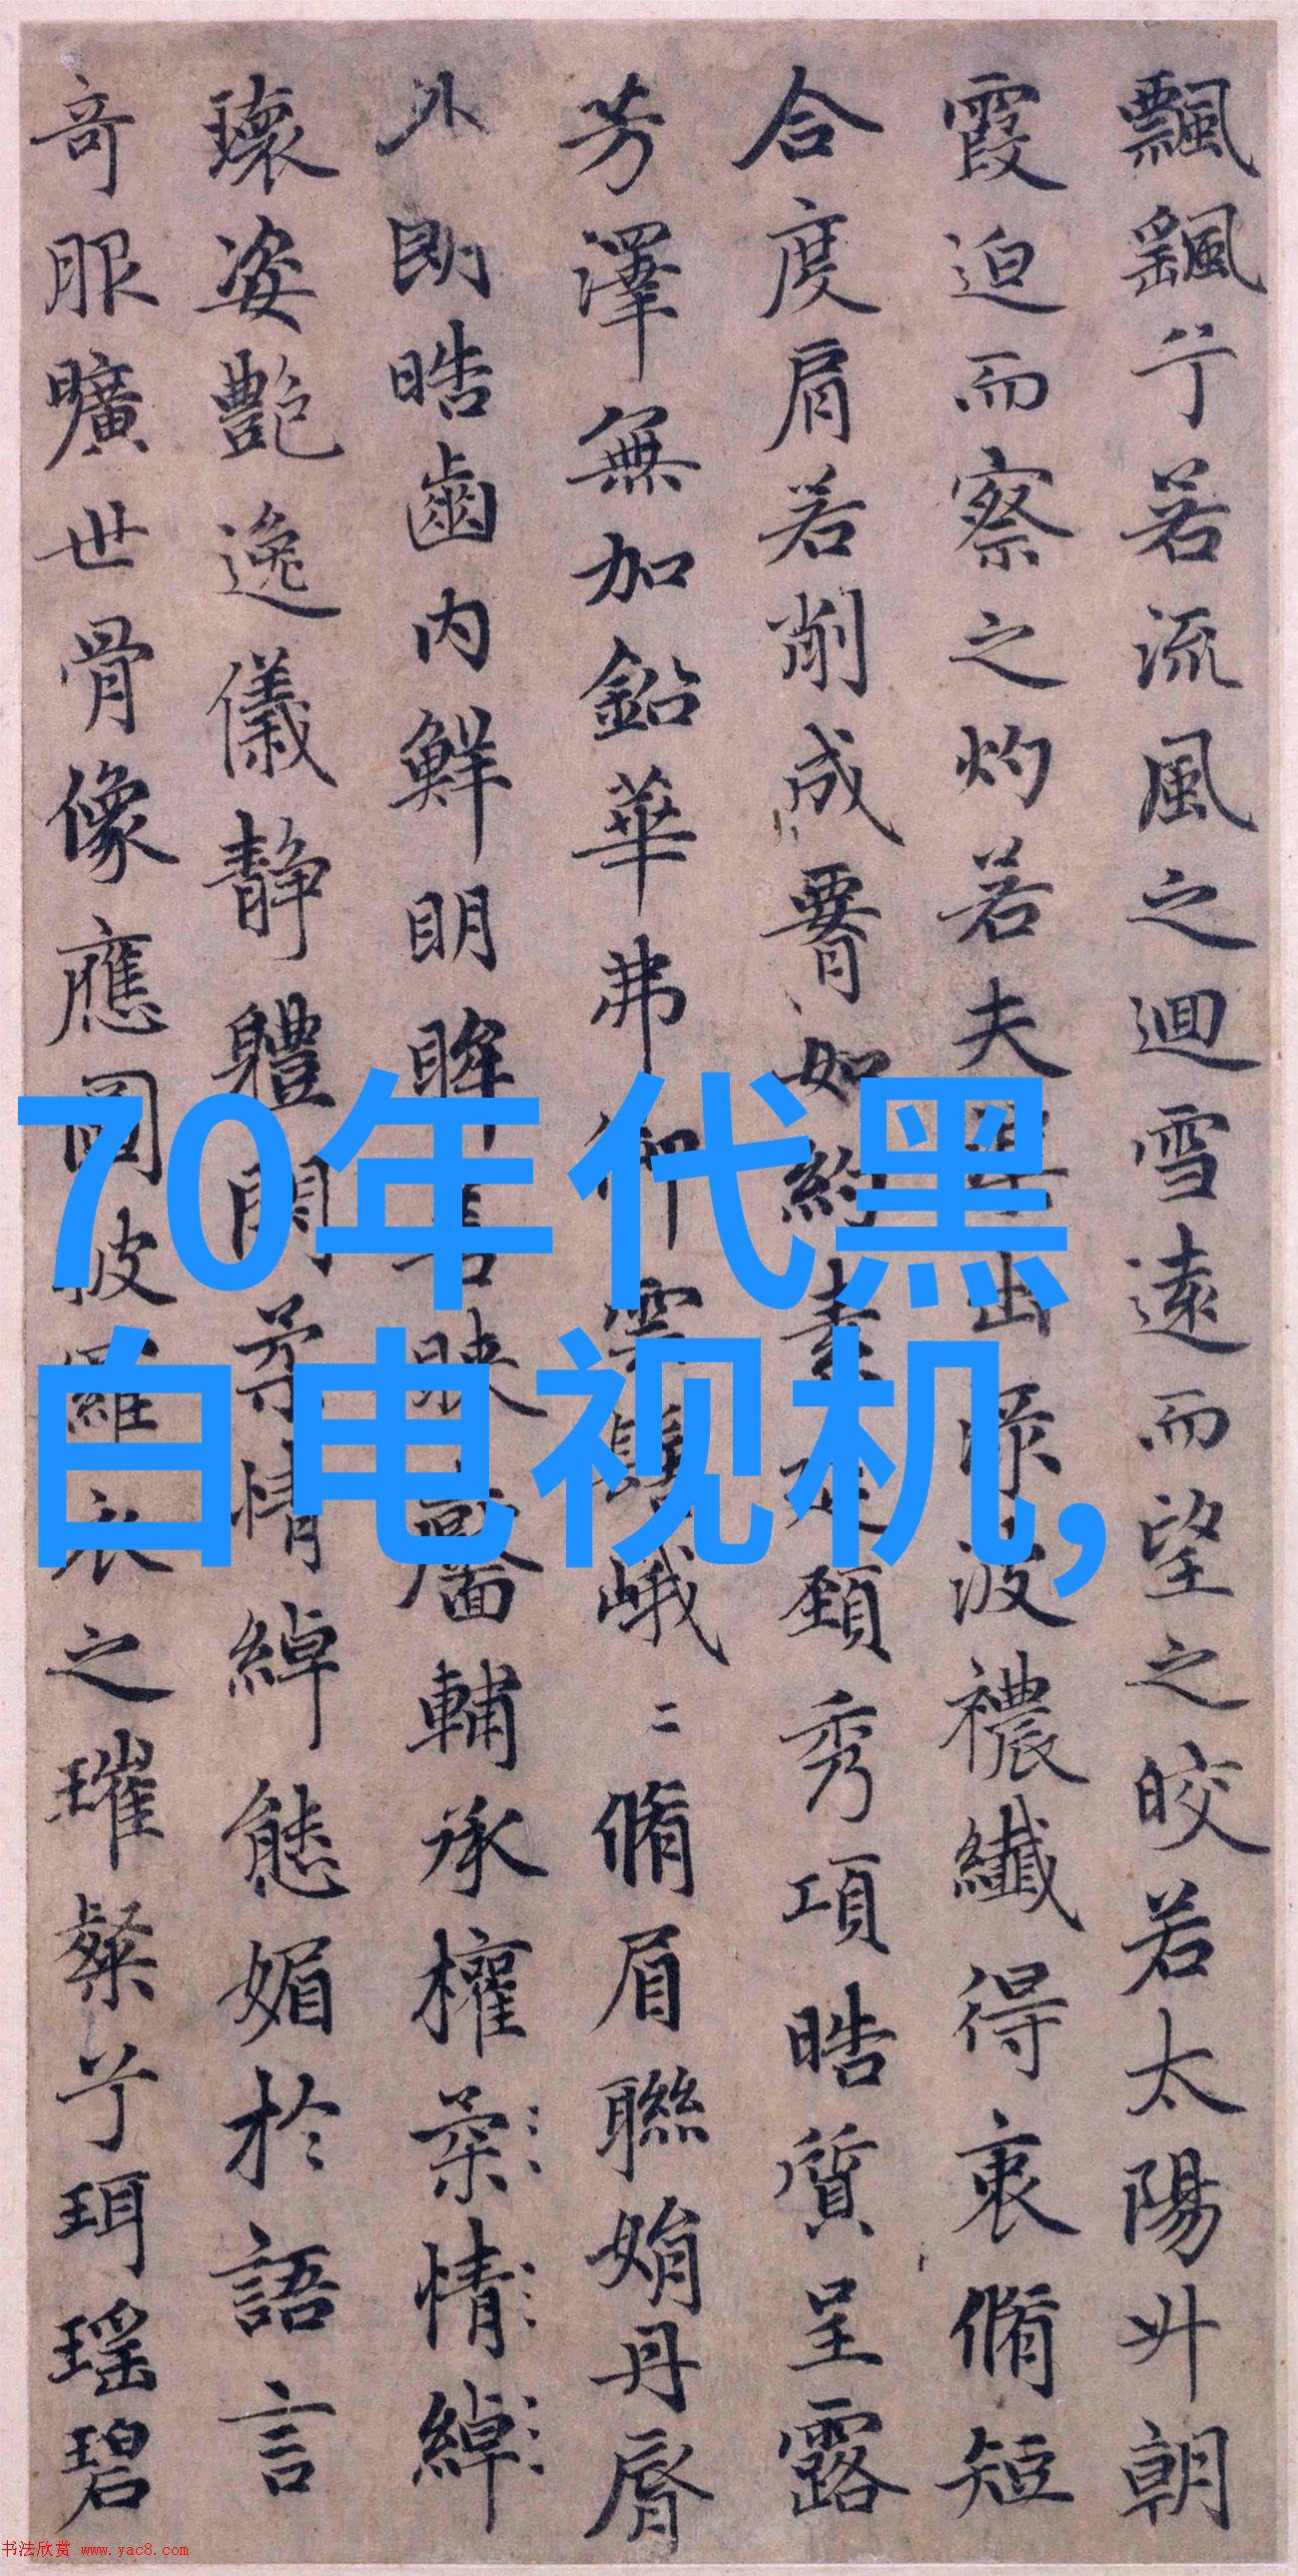 飄飖兮若流風之迴雪遠而望之皎若太陽升朝
霞迫而察之灼若夫渠出淥波襛纖得衷脩短
合度肩若削成腰如約素延頸秀項皓質呈露
芳澤無加鉛華弗御雲髻峨二脩眉聯娟丹脣
外朗皓齒内鮮明眸善睞靨輔承權柔情綽
瓌姿艷逸儀靜體閑柔情綽態媚於語言
奇服曠世骨像應圖披羅衣之璀粲兮珥瑤碧
70年代黑
白电视机,
书法欣赏 www.yac8.com